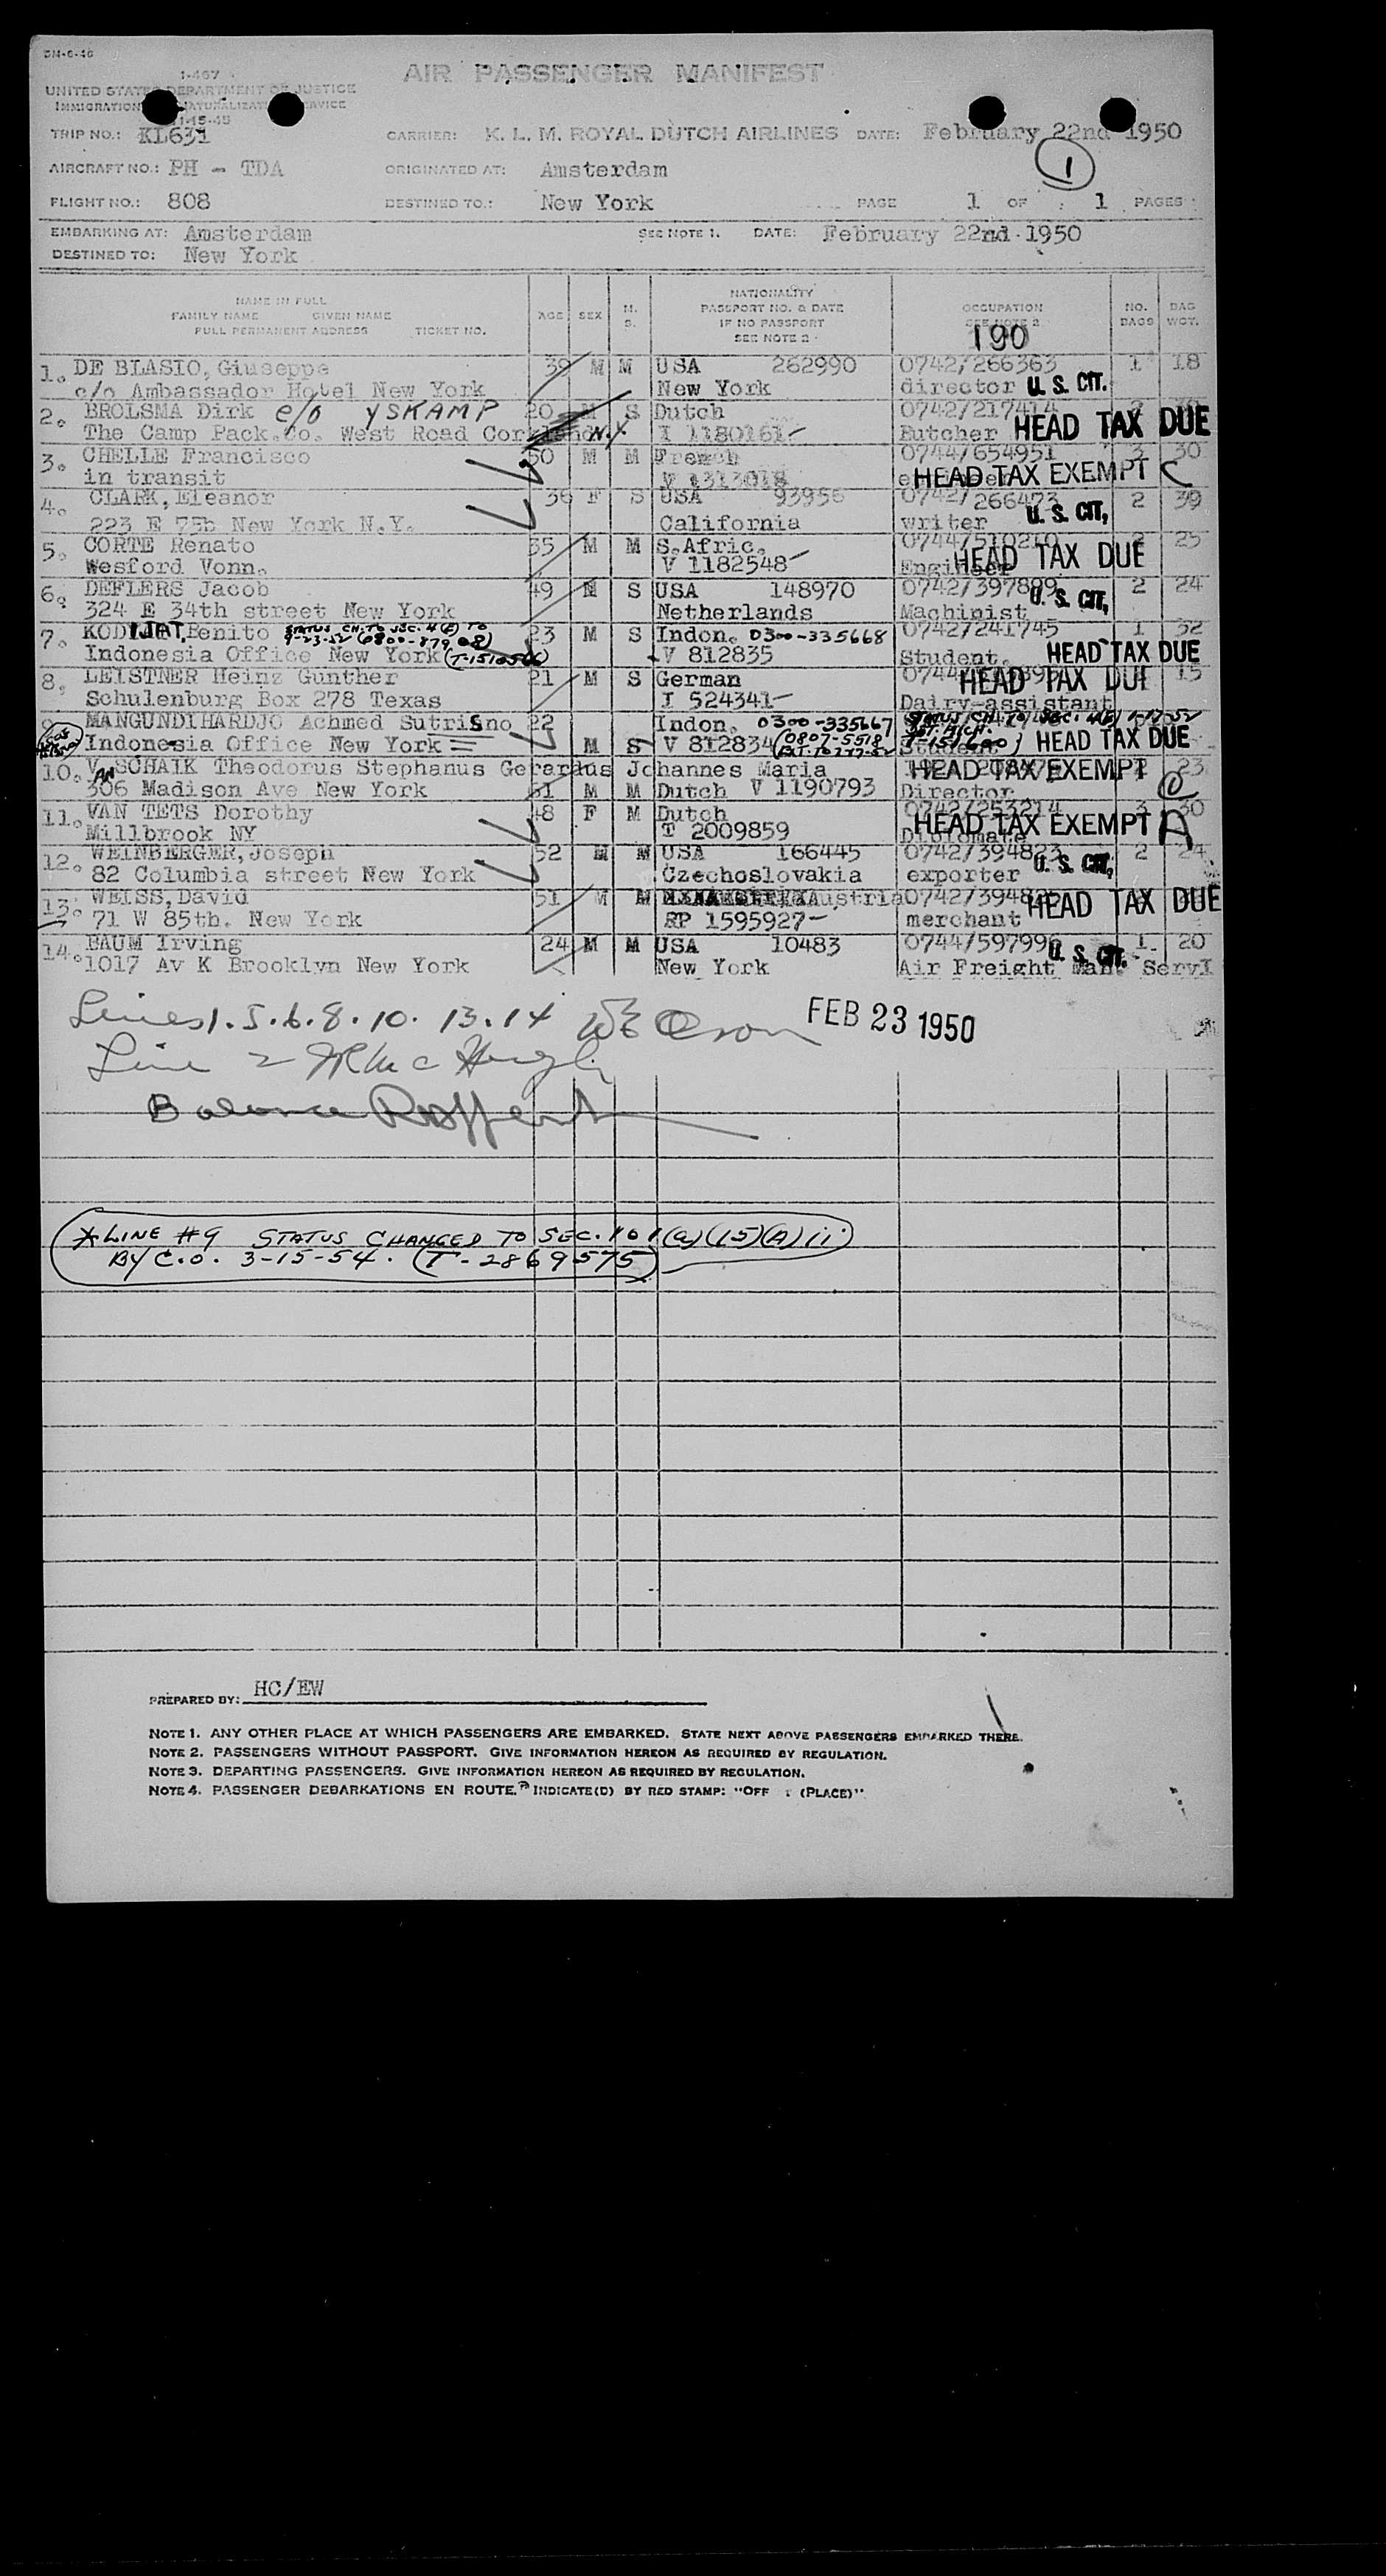 DM-6-46
AIR PASSENGER MANIFEST
I-467
UNITED STATES DEPARTMENT OF JUSTICE
IMMIGRATION NATURALIZATION SERVICE
TRIP NO.: KL631 CARRIER: K. L. M. ROYAL DUTCH AIRLINES DATE: February 22nd 1950
1
AIRCRAFT NO.: PH - TDA ORIGINATED AT: Amsterdam
FLIGHT NO.: 808 DESTINED TO.: New York PAGE 1 OF 1 PAGES
EMBARKING AT: Amsterdam SEE NOTE 1. DATE: February 22nd 1950
DESTINED TO: New York
NAME IN FULL
FAMILY NAME GIVEN NAME
FULL PERMANENT ADDRESS TICKET NO.
AGE SEX M. S.
NATIONALITY
PASSPORT NO. & DATE
IF NO PASSPORT
SEE NOTE 2
OCCUPATION
SEE NOTE 2
190
NO. BAGS BAG WGT.
1. DE BLASIO, Giuseppe 39 M M USA 262990 0742/266363 1 18
c/o Ambassador Hotel New York New York director U. S. CIT.
2. BROLSMA Dirk c/o YSKAMP 20 M S Dutch 0742/217414
The Camp Pack.Co. West Road Cortland N.Y. I 1180161 Butcher HEAD TAX DUE
3. CHELLE Francisco 50 M M French 0744/654951 3 30
in transit V 1313018 HEAD TAX EXEMPT C
4. CLARK, Eleanor 36 F S USA 93956 0742/266473 2 39
223 E 75h New York N.Y. California writer U. S. CIT,
5. CORTE Renato 35 M M S.Afric. 0744/510210 2 25
Wesford Vonn. V 1182548 Engineer HEAD TAX DUE
6. DEFLERS Jacob 49 M S USA 148970 0742/397809 2 24
324 E 34th street New York Netherlands Machinist U. S. CIT,
7. KODIJAT, Benito STATUS CH. TO SEC. 4(E) TO 23 M S Indon. 0300-335668 0742/241745 1 32
9-23-52 (0800-879 08)
Indonesia Office New York (T-1510566) V 812835 Student. HEAD TAX DUE
8. LEISTNER Heinz Gunther 21 M S German 15
Schulenburg Box 278 Texas I 524341 Dairy-assistant HEAD TAX DUE
9. MANGUNDIHARDJO Achmed Sutrisno 22 Indon. 0300-335667 STATUS CH. TO SEC. 4(E)
Indonesia Office New York M S V 812834 (0807-5518 Student HEAD TAX DUE
10. VAN SCHAIK Theodorus Stephanus Gerardus Johannes Maria HEAD TAX EXEMPT 23
306 Madison Ave New York 61 M M Dutch V 1190793 Director
11. VAN TETS Dorothy 48 F M Dutch 0742/253214 3 30
Millbrook NY T 2009859 Diplomate HEAD TAX EXEMPT A
12. WEINBERGER, Joseph 52 M M USA 166445 0742/394823 2 24
82 Columbia street New York Czechoslovakia exporter U. S. CIT,
13. WEISS, David 51 M M Austria 0742/394825
71 W 85th. New York RP 1595927 merchant HEAD TAX DUE
14. BAUM Irving 24 M M USA 10483 0744/597996 1 20
1017 Av K Brooklyn New York New York Air Freight Man. Servi U. S. CIT.
Lines 1. 5. 6. 8. 10. 13. 14 FEB 23 1950
Line 2
Balance
* LINE #9 STATUS CHANGED TO SEC. 101(a)(15)(A)ii
BY C.O. 3-15-54. (T-2869575)
PREPARED BY: HC/EW
NOTE 1. ANY OTHER PLACE AT WHICH PASSENGERS ARE EMBARKED. STATE NEXT ABOVE PASSENGERS EMBARKED THERE.
NOTE 2. PASSENGERS WITHOUT PASSPORT. GIVE INFORMATION HEREON AS REQUIRED BY REGULATION.
NOTE 3. DEPARTING PASSENGERS. GIVE INFORMATION HEREON AS REQUIRED BY REGULATION.
NOTE 4. PASSENGER DEBARKATIONS EN ROUTE. INDICATE(D) BY RED STAMP: "OFF (PLACE)"